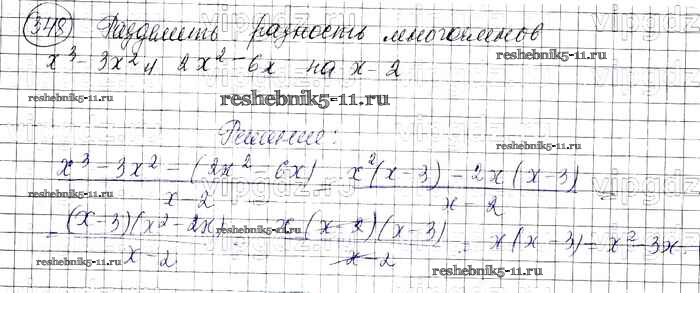 348 Разделить разность многочленов
x³ - 3x² и 2x² - 6x на x - 2
reshebnik5-11.ru
reshebnik5-11.ru
Решение:
reshebnik5-11.ru
x³ - 3x² - (2x² - 6x) / x - 2 = x²(x - 3) - 2x(x - 3) / x - 2 =
vipgdz.ru
= (x - 3)(x² - 2x) / x - 2 = x(x - 2)(x - 3) / x - 2 = x(x - 3) = x² - 3x
reshebnik5-11.ru
reshebnik5-11.ru